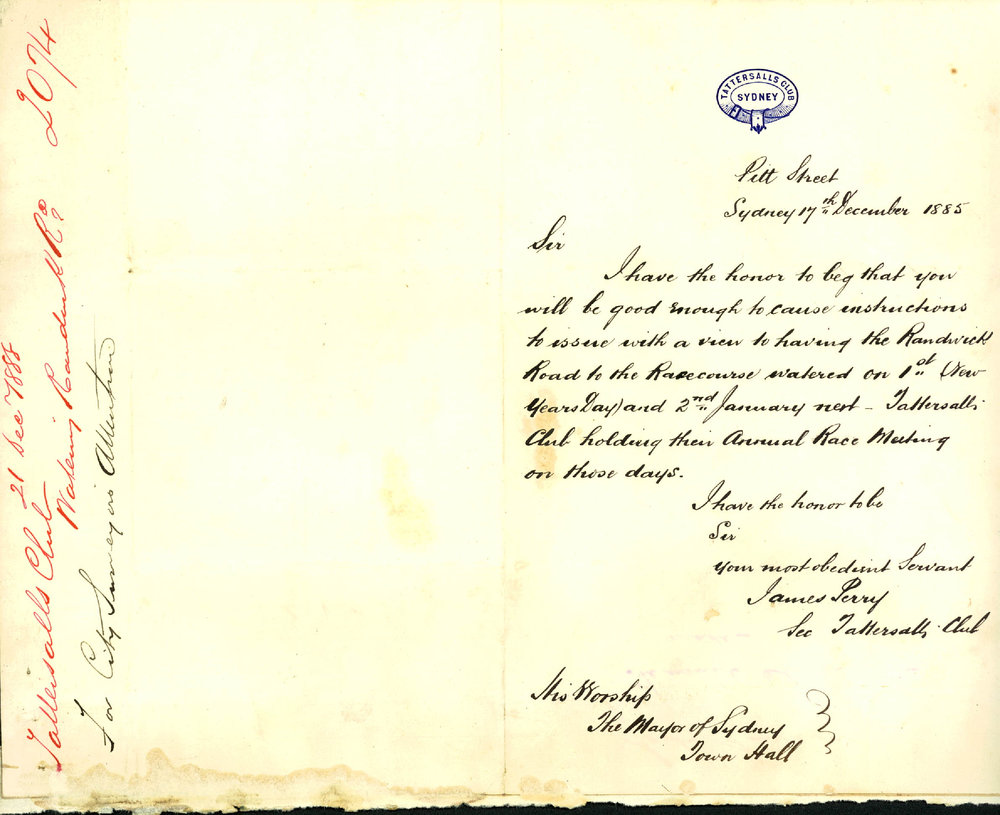 2074
21 Dec 1885
Tattersalls Club
Watering Randwick Rd
For City Surveyors Attention
TATTERSALLS CLUB
SYDNEY
Pitt Street
Sydney 17th December 1885
Sir
I have the honor to beg that you
will be good enough to cause instructions
to issue with a view to having the Randwick
Road to the Racecourse watered on 1st (New
Years Day) and 2nd January next - Tattersalls
Club holding their Annual Race Meeting
on those days.
I have the honor to be
Sir
your most obedient Servant
James Perry
Sec Tattersalls Club
His Worship
The Mayor of Sydney
Town Hall